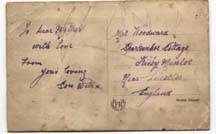 To dear Mother
with love
from
your loving
Son
Mrs Woodward
Cottage
Kirby Muxloe
Near Leicester
England